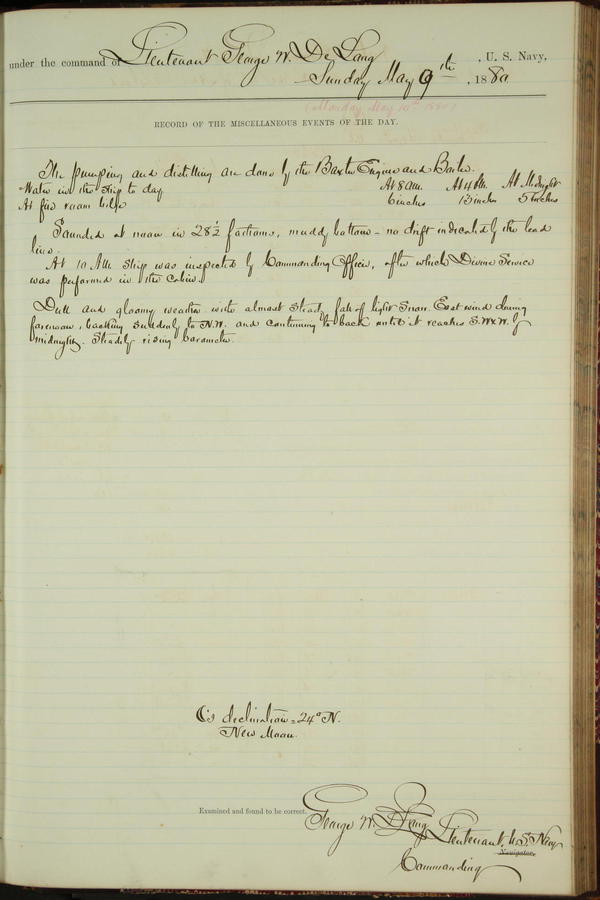 under the command of Lieutenant George W. De Long, U. S. Navy,
Sunday May 9th, 1880
(Monday May 10th 1880)
RECORD OF THE MISCELLANEOUS EVENTS OF THE DAY.
The pumping and distilling are done by the Baxter Engine and Boiler.
Water in the ship to day At 8 a.m. At 4 P.M. At Midnight
At fire room bilge 6 inches 13 inches 5 inches
Sounded at noon in 28½ fathoms, muddy bottom - no drift indicated by the lead
line.
At 10 AM ship was inspected by Commanding Officer, after which Divine Service
was performed in the Cabin.
Dull and gloomy weather with almost steady fall of light snow. East wind during
forenoon, backing suddenly to N.W. and continuing to back until it reaches S.W x W. by
midnight. Steadily rising barometer.
☾'s declination = 24° N.
New Moon.
Examined and found to be correct.
George W. De Long Lieutenant, U.S. Navy
Navigator.
Commanding